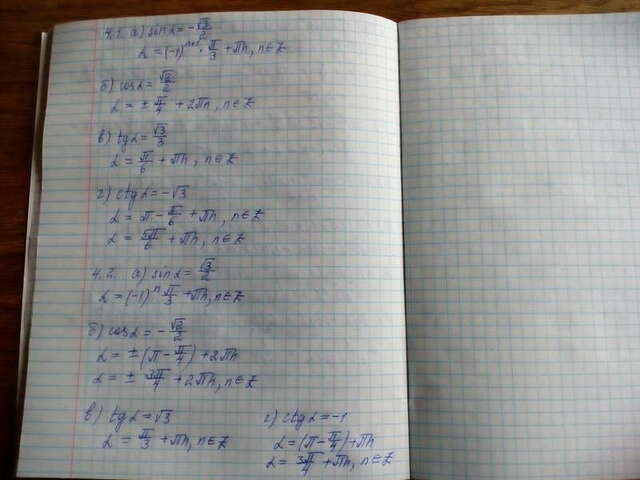 4.1. а) sin α = -√3/2
α = (-1)ⁿ⁺¹ · π/3 + πn, n ∈ Z
б) cos α = √2/2
α = ± π/4 + 2πn, n ∈ Z
в) tg α = √3/3
α = π/6 + πn, n ∈ Z
г) ctg α = -√3
α = π - π/6 + πn, n ∈ Z
α = 5π/6 + πn, n ∈ Z
4.2. а) sin α = √3/2
α = (-1)ⁿ π/3 + πn, n ∈ Z
б) cos α = -√2/2
α = ± (π - π/4) + 2πn
α = ± 3π/4 + 2πn, n ∈ Z
в) tg α = √3
α = π/3 + πn, n ∈ Z
г) ctg α = -1
α = (π - π/4) + πn
α = 3π/4 + πn, n ∈ Z